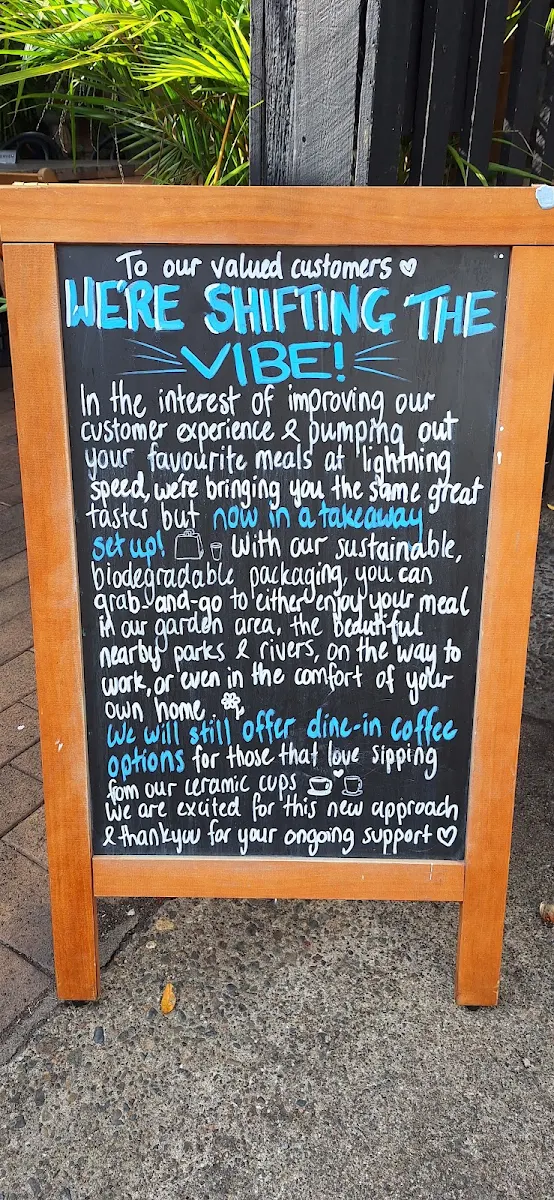 To our valued customers ♡
WE'RE SHIFTING THE
VIBE!
In the interest of improving our
customer experience & pumping out
your favourite meals at lightning
speed, we're bringing you the same great
tastes but now in a takeaway
set up! With our sustainable,
biodegradable packaging, you can
grab-and-go to either enjoy your meal
in our garden area, the beautiful
nearby parks & rivers, on the way to
work, or even in the comfort of your
own home.
We will still offer dine-in coffee
options for those that love sipping
from our ceramic cups
We are excited for this new approach
& thankyou for your ongoing support ♡